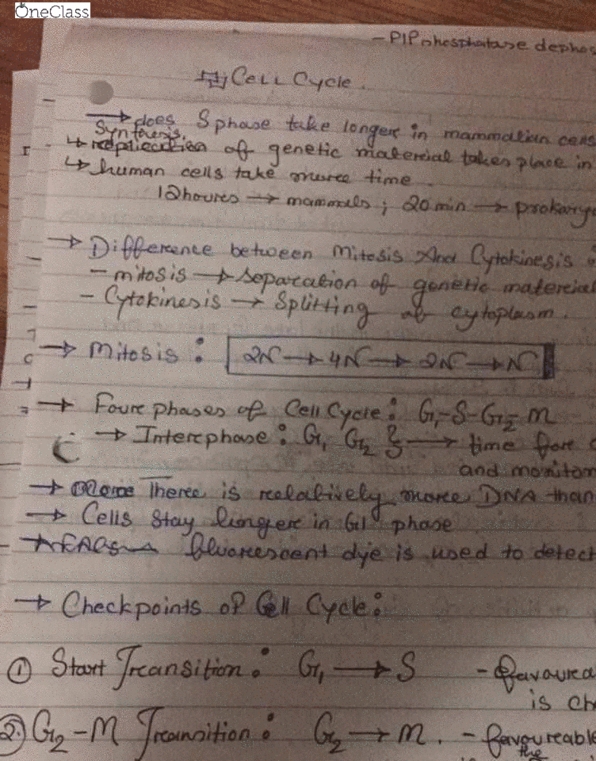 OneClass
- PIP phosphatase dephos
# Cell Cycle.
→ does S phase take longer in mammalian cells
synthesis.
↳ replication of genetic material takes place in
↳ human cells take more time.
12 hours → mammals; 20 min → prokaryo
→ Difference between Mitosis And Cytokinesis :
- mitosis → separation of genetic material
- Cytokinesis → Splitting of cytoplasm.
→ Mitosis : 2N → 4N → 2N → N
→ Four phases of Cell Cycle : G1-S-G2-M
→ Interphase : G1 G2 → time for
and monitor
→ There is relatively more DNA than
→ Cells stay longer in G1 phase
→ FACS → fluorescent dye is used to detect
→ Checkpoints of Cell Cycle :
① Start Transition : G1 → S - favoura
is ch
②. G2-M Transition : G2 → M. - favourable
the